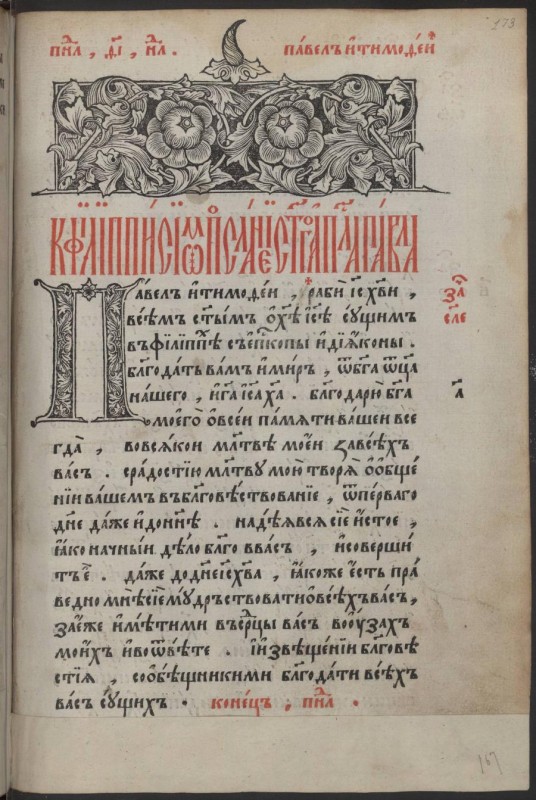 пнⷣл҇, д҃і, нⷣл҇. павелъ и҆тимоѳей 173
Кфїлїпписїѡⷨ посланїе ст҃го апⷭ҇ла павла
Павелъ и҆тимоѳеи, раби̑ і҆с҃ хв҃и,
всѣмъ ст҃ы́мъ ѻ҆хѣ̀ і҆с҃ѣ су́щимъ
въфїлїппѣⷯ съе҆пⷭ҇копы и҆дїꙗ҆коны.
блг҃ода́ть ва́мъ и҆ми́ръ, ѿбг҃а ѻ҆ц҃а
на́шего, и҆гⷭ҇а і҆с҃а хⷭ҇а. благодарю̀ бг҃а
моего̀ ѻ҆всеи па́мѧти вашеи все
гда̀, вовсѧ́кои мл҃твѣ мое́и завсѣ́хъ
ва́съ. сра́достїю мл҃тву мою̀ творѧ̀ ѻ҆ѻ҆бще́
нїи ва́шемъ въблг҃овѣ́ствованїе, ѿпе́рваго
дн҃е да́же и҆донн҃ѣ. надѣ́ѧвсѧ сїѐ и҆́стое,
ꙗ҆́ко начныи дѣ́ло бл҃го вва́съ, и҆соверши́
тъ є҆̀. да́же додн҃е і҆с҃хв҃а, ꙗ҆́коже є҆́сть пра́
ведно мнѣ̀ сїѐ му́дръствовати ѻ҆всѣ́хъ ва́съ,
зае҆́же и҆мѣ́ти ми въср҃цы ва́съ воѻ҆у́захъ
мои́хъ и҆воѿвѣ́те. и҆и҆звѣще́нїи блг҃овѣ
стїѧ, соѻ҆бѣщники ми блг҃ода́ти всѣ́хъ
ва́съ су́щихъ. коне́цъ, пнⷣл҇.
за҇ч
сл҃е
а҃
167